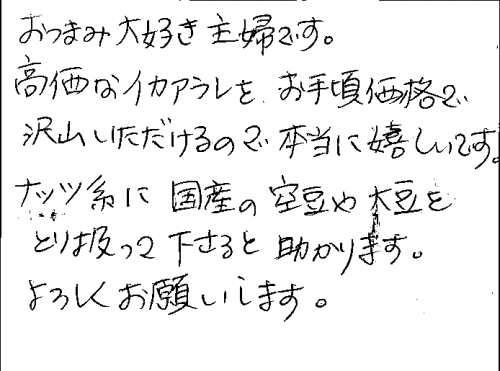 おつまみ大好き主婦です。
高価なイカアラレを、お手頃価格で
沢山いただけるので本当に嬉しいです。
ナッツ系に国産の空豆や大豆を
とり扱って下さると助かります。
よろしくお願いします。